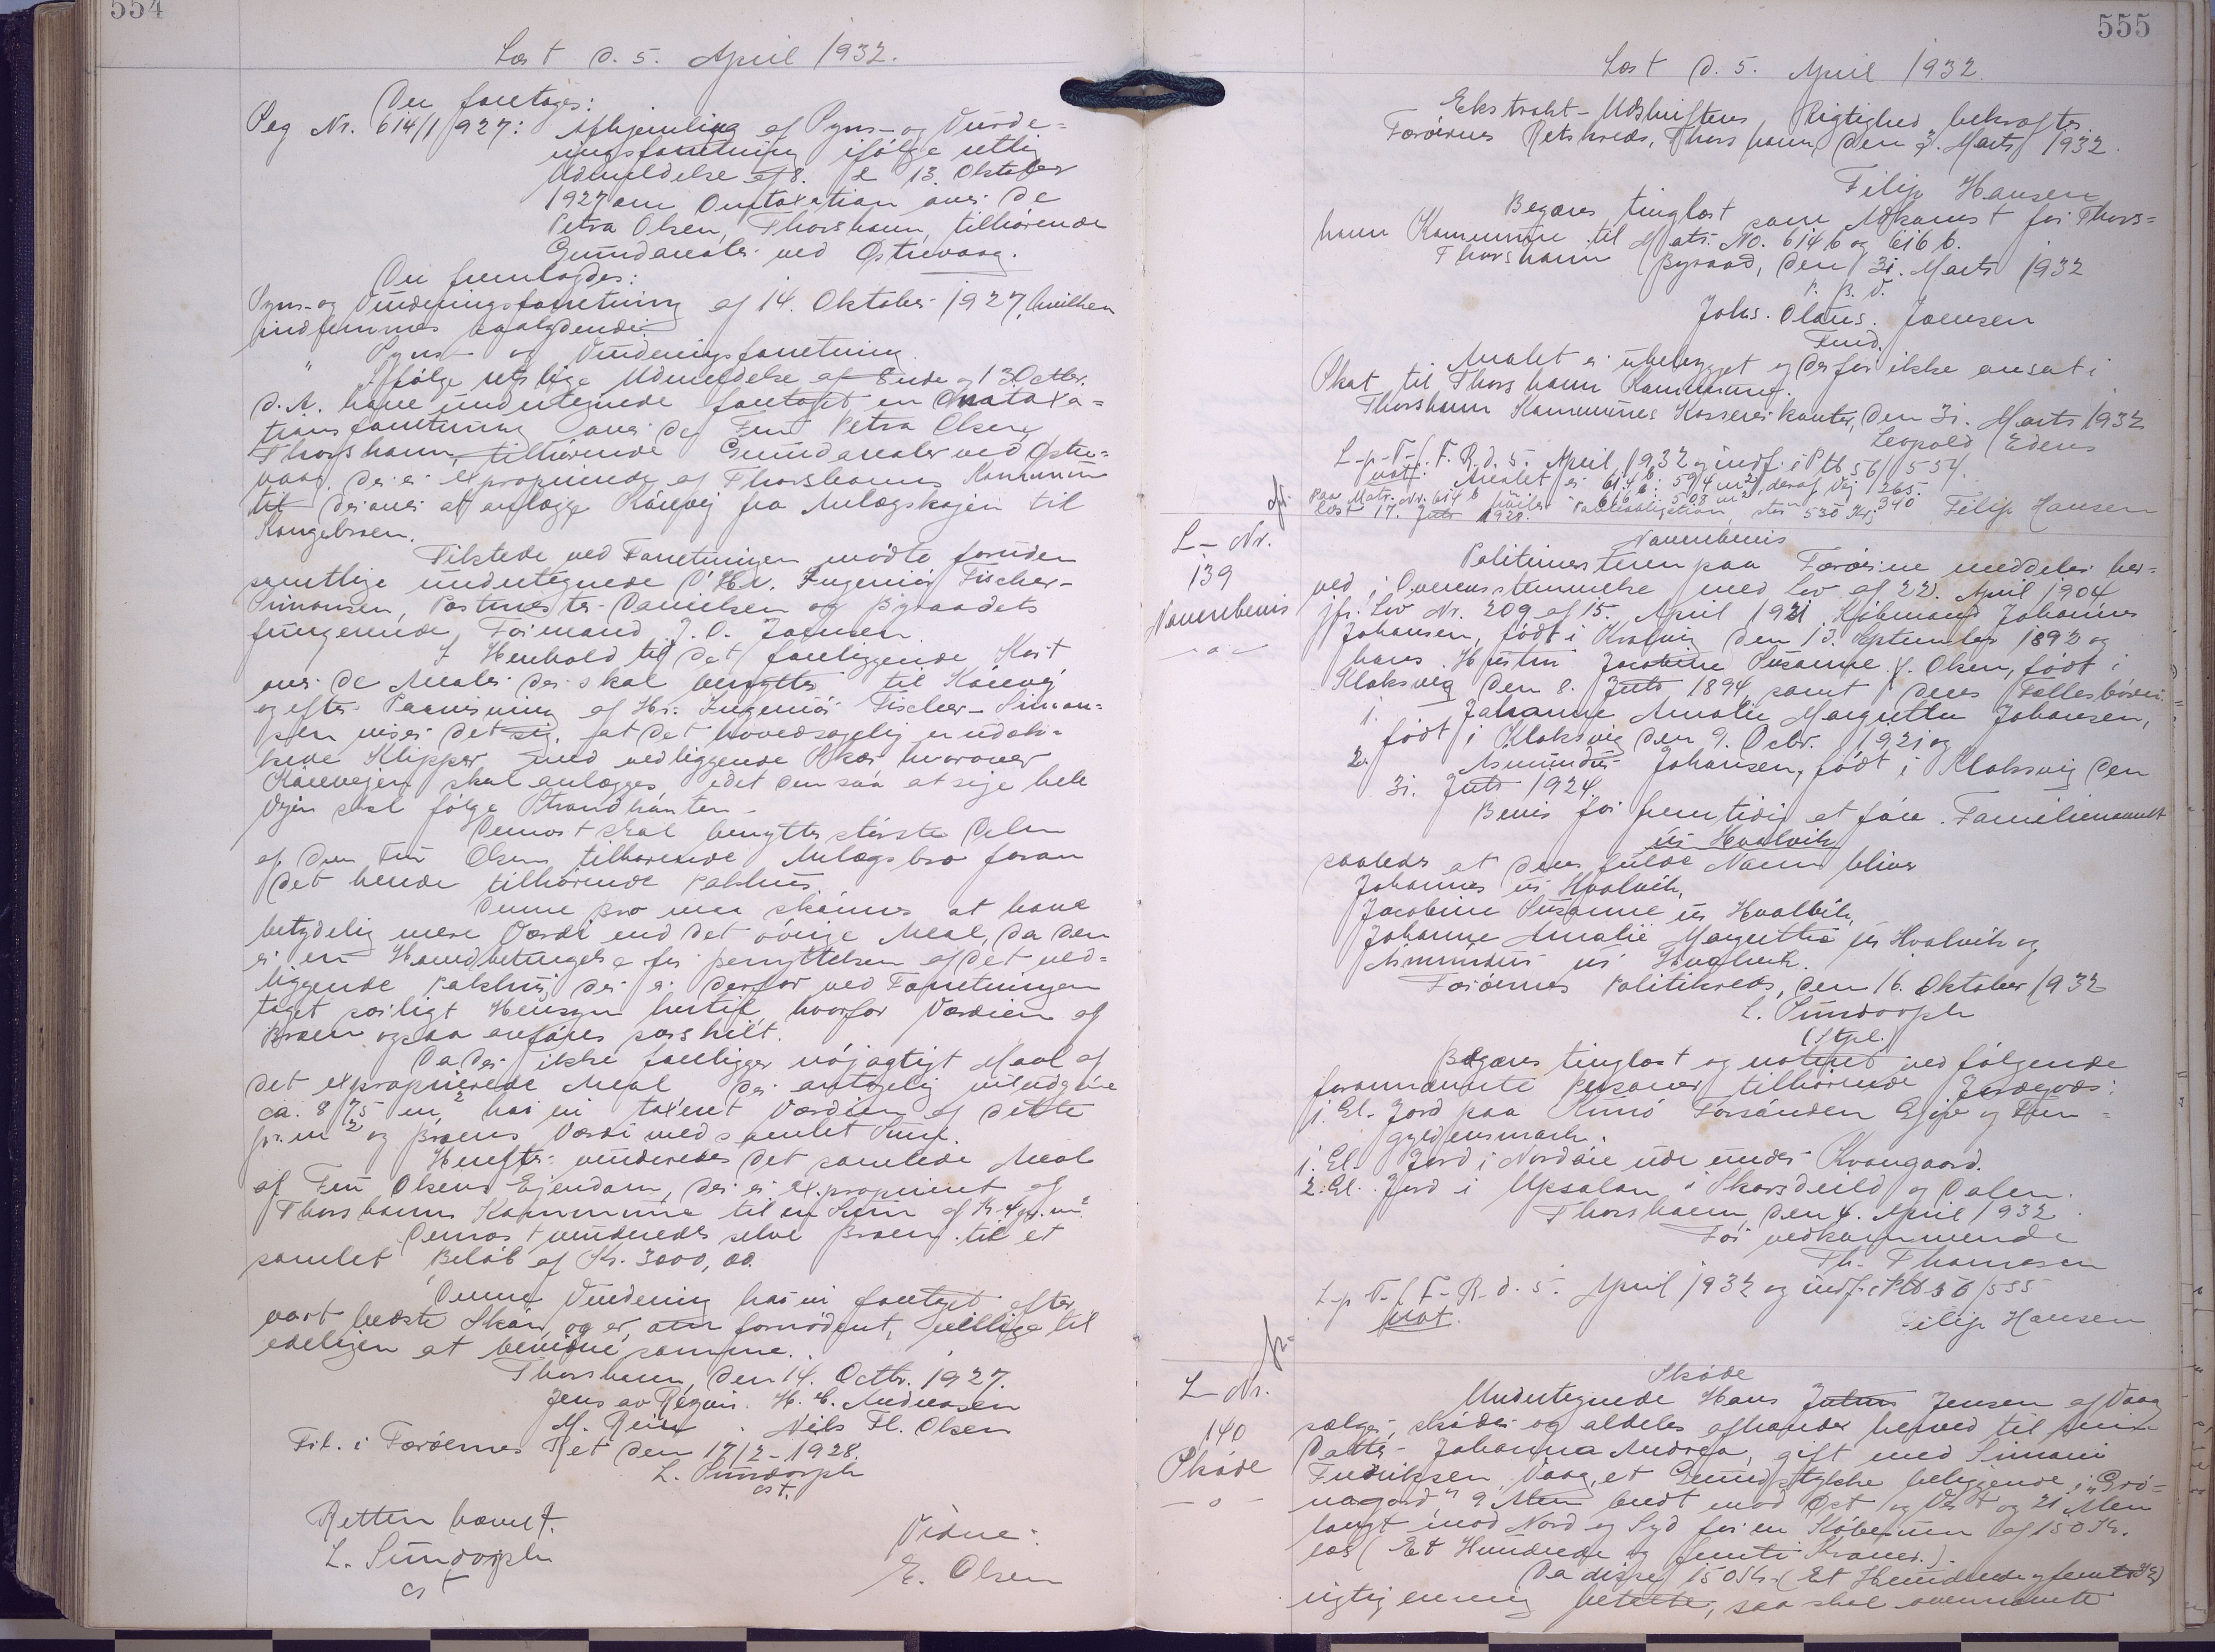 554
Læst d. 5. April 1932.
Der foretoges:
Reg Nr. 614/1927: Afhjemling af Syns- og Vurde-
ringsforretning ifølge retlig
Udmeldelse af 8. & 13. Oktober
1927 om Omtaxation over de
Petra Olsen, Thorshavn, tilhørende
Grundarealer ved Østrevaag.
Der fremlagdes:
Syns- og Vurderingsforretning af 14. Oktober 1927, hvilken
indlemmes saalydende:
" Syns- og Vurderingsforretning.
Ifølge retslige Udmeldelse af 8nde og 13 Octbr.
d. A. have undertegnede foretaget en Omtaxa-
tionsforretning over de Fru Petra Olsen,
Thorshavn, tilhørende Grundarealer ved Østre-
vaag, der er exproprieret af Thorshavns Kommune
til derover at anlægge Kørevej fra Anlægskajen til
Kongebroen.
Tilstede ved Forretningen mødte foruden
samtlige undertegnede d'Hrr. Ingeniør Fischer-
Simonsen, Postmester Danielsen og Byraadets
fungerende Formand J. O. Joensen.
I Henhold til det foreliggende Kort
over de Arealer der skal benyttes til Kørevej
og efter Paavisning af Hr. Ingeniør Fischer-Simon-
sen viser det sig, at det hovedsagelig er udæk-
kede Klipper med vedliggende Skær hvorover
Kørevejen skal anlægges idet den saa at sige hele
Vejen skal følge Strandkanten.
Dernæst skal benyttes største Delen
af den Fru Olsen tilhørende Anlægsbro foran
det hende tilhørende Pakhus.
Denne Bro maa skønnes at have
betydelig mere Værdi end det øvrige Areal, da den
er en Hovedbetingelse for Benyttelsen af det ved-
liggende Pakhus, der er derfor ved Forretningen
taget særligt Hensyn hertil, hvorfor Værdien af
Broen ogsaa anføres særskilt.
Da der ikke foreligger nøjagtigt Maal af
det exproprierede Areal der antagelig vil udgøre
ca. 875 m², har vi taxeret Værdien af dette
pr. m² og Broens Værdi med samlet Sum.
Herefter vurderedes det samlede Areal
af Fru Olsens Ejendom, der er exproprieret af
Thorshavns Kommune til en Sum af Kr. 4 pr. m²
Dernæst vurderedes selve Broen til et
samlet Beløb af Kr. 3000,00.
Denne Vurdering har vi foretaget efter
vort bedste Skøn og er, om fornødent, villige til
edeligen at beedige samme.
Thorshavn, den 14. Octbr. 1927.
Jens av Reyni. H. C. Andreasen
M. Rein. Niels Fl. Olsen
Frt. i Færøernes Ret den 17/2-1928.
L. Sundorph
cst.
Retten hævet.
L. Sundorph
cst
Vidne:
E. Olsen
555
Læst d. 5. April 1932.
Ekstrakt-Udskriftens Rigtighed bekræftes.
Færøernes Retskreds, Thorshavn, den 3. Marts 1932.
Filip Hansen
Begæres tinglæst som Adkomst for Thors-
havn Kommune til Matr. No. 614 b og 616 b.
Thorshavn Byraad, den 31. Marts 1932
P. B. V.
Johs. Olaus. Joensen
Fmd.
Arealet er ubebygget og derfor ikke ansat i
Skat til Thorshavn Kommune.
Thorshavn Kommunes Kassererkontor, den 31. Marts 1932
Leopold Edens
L-p-T-f. F. R. d. 5. April 1932 og indf. i Ptb 56/554.
not. Arealet er 614 b: 594 m², deraf Vej 1265.
616 b: 508 m² 340
paa Matr. Nr. 614 b hæfter Panteobligation, stor 530 Kr,
læst 17. Juli 1928.
Filip Hansen
L-Nr.
139
Navnebevis
Navnebevis
Politimesteren paa Færøerne meddeler her-
ved i Overensstemmelse med Lov af 22. April 1904
jfr. Lov Nr. 209 af 15. April 1921 Købmand Johannes
Johansen, født i Kvalvig den 13. September 1893 og
hans Hustru Jacobine Susanne f. Olsen, født i
Klaksvig den 8. Juli 1894 samt deres Fællesbørn:
1. Johanne Amalie Margretha Johansen,
født i Klaksvig den 9. Octbr. 1921 og
2. Asmundur Johansen, født i Klaksvig den
31. Juli 1924.
Bevis for fremtidig at føre Familienavnet
úr Hvalvík
saaledes at deres fulde Navne bliver
Johannes úr Hvalvík,
Jacobine Susanne úr Hvalvík,
Johanne Amalie Margretha úr Hvalvík og
Asmundur úr Hvalvík.
Færøernes Politikreds, den 16. Oktober 1932
L. Sundorph
(Stpl.)
Begæres tinglæst og noteret ved følgende
forannævnte Personer tilhørende Jordegods:
1. El. Jord paa Kunø Forsánden Ejge og Fem-
gyldensmark.
1. El. Jord i Nordøre ude under Kvangaard.
2. El. Jord i Upsalan i Skorsduld og Dalen.
Thorshavn, den 4. April 1932
For vedkommende
Th. Thomasen
L-p T-f F-R-d. 5. April 1932 og indf. i Ptb 56/555
Not.
Filip Hansen
L-Nr.
140
Skøde
Skøde
Undertegnede Hans Julius Jensen af Vaag
sælger, skøder og aldeles afhænder herved til min
Datter Johanna Andrea, gift med Simoni
Fredriksen, Vaag, et Grundstykke beliggende i "Grø-
nagard" 9 Alen bredt mod Øst og Vest og 21 Alen
langt mod Nord og Syd for en Købesum af 150 Kr.
læs (Et Hundrede og femti Kroner.).
Da disse 150 Kr. (Et Hundrede og femti Kr)
rigtig er mig betalte, saa skal ovennævnte